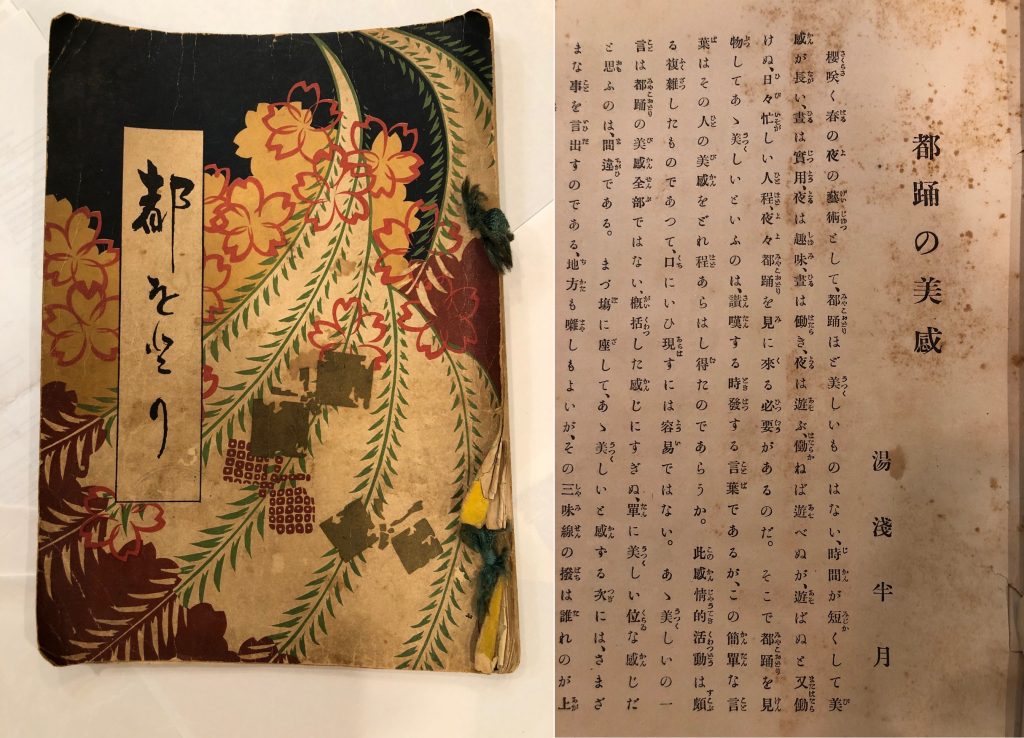 都をどり
都踊の美感
湯淺半月
櫻咲く春の夜の藝術として、都踊ほど美しいものはない、時間が短くして美
感が長い、晝は實用、夜は趣味、晝は働き、夜は遊ぶ、働ねば遊べぬが、遊ばぬと又働
けぬ、日々忙しい人程、夜々都踊を見に來る必要があるのだ。 そこで都踊を見
物してあゝ美しいといふのは、讃嘆する時發する言葉であるが、この簡單な言
葉はその人の美感をどれ程あらはし得たのであらうか。 此感情的活動は頗
る複雜したものであつて、口にいひ現すには容易ではない。 あゝ美しいの一
言は都踊の美感全部ではない、槪括した感じにすぎぬ、單に美しい位な感じだ
と思ふのは、間違である。 まづ塲に座して、あゝ美しいと感ずる次には、さまざ
まな事を言出すのである、地方も囃しもよいが、その三味線の撥は誰れのが上